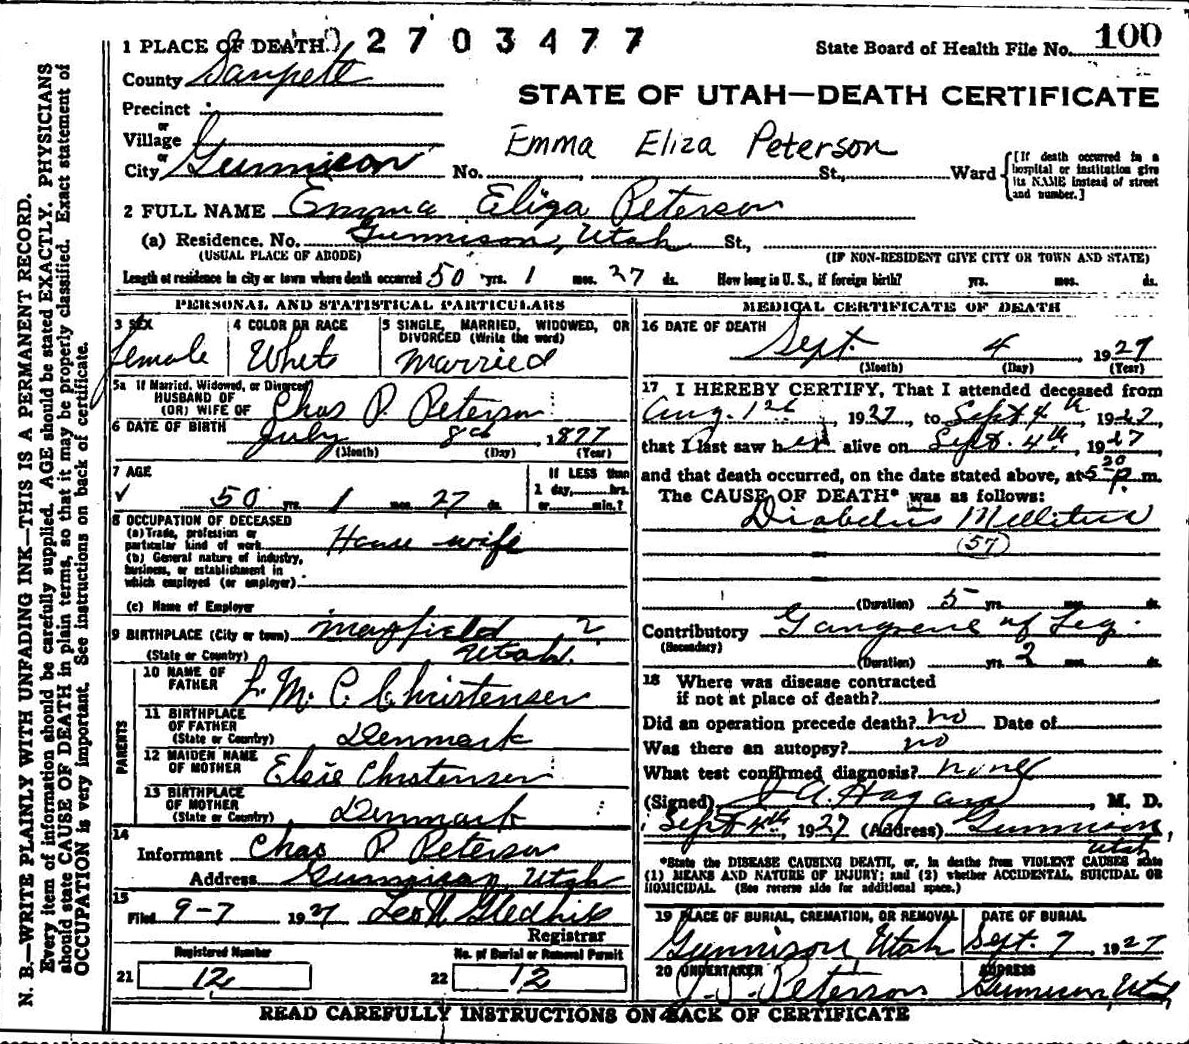 1 PLACE OF DEATH 2703477
State Board of Health File No. 100
County Sanpete
STATE OF UTAH—DEATH CERTIFICATE
Precinct
or
Village
Emma Eliza Peterson
or
City Gunnison No. , St., Ward {[If death occurred in a hospital or institution give its NAME instead of street and number.]
2 FULL NAME Emma Eliza Peterson
(a) Residence. No. Gunnison, Utah St.,
(USUAL PLACE OF ABODE) (IF NON-RESIDENT GIVE CITY OR TOWN AND STATE)
Length of residence in city or town where death occurred 50 yrs. 1 mos. 27 ds. How long in U. S., if foreign birth? yrs. mos. ds.
PERSONAL AND STATISTICAL PARTICULARS
3 SEX
female
4 COLOR OR RACE
White
5 SINGLE, MARRIED, WIDOWED, OR
DIVORCED (Write the word)
Married
5a If Married, Widowed, or Divorced
HUSBAND OF
(OR) WIFE OF Chas P. Peterson
6 DATE OF BIRTH July 8th, 1877
(Month) (Day) (Year)
7 AGE
50 yrs. 1 mos. 27 ds.
If LESS than
1 day, hrs.
or min.?
8 OCCUPATION OF DECEASED
(a) Trade, profession or
particular kind of work House wife
(b) General nature of industry,
business, or establishment in
which employed (or employer)
(c) Name of Employer
9 BIRTHPLACE (City or town) Mayfield 2
(State or Country) Utah.
PARENTS
10 NAME OF
FATHER L. M. C. Christensen
11 BIRTHPLACE
OF FATHER
(State or Country) Denmark
12 MAIDEN NAME
OF MOTHER Elsie Christensen
13 BIRTHPLACE
OF MOTHER
(State or Country) Denmark
14
Informant Chas P Peterson
Address Gunnison, Utah
15
Filed 9-7 1927 Leo N Gledhill
Registrar
Registered Number
21 12
No. of Burial or Removal Permit
22 12
MEDICAL CERTIFICATE OF DEATH
16 DATE OF DEATH
Sept. 4, 1927
(Month) (Day) (Year)
17 I HEREBY CERTIFY, That I attended deceased from
Aug. 1st, 1927, to Sept 4th, 1927
that I last saw her alive on Sept. 4th, 1927
and that death occurred, on the date stated above, at 5 20 P. m.
The CAUSE OF DEATH* was as follows:
Diabetus Mellitus
(57)
(Duration) 5 yrs. mos. ds.
Contributory Gangrene of Leg.
(Secondary)
(Duration) yrs. 2 mos. ds.
18 Where was disease contracted
if not at place of death?
Did an operation precede death? no Date of
Was there an autopsy? no
What test confirmed diagnosis? none
(Signed) J A. Hagan, M. D.
Sept 4th, 1927 (Address) Gunnison,
Utah
*State the DISEASE CAUSING DEATH, or, in deaths from VIOLENT CAUSES state
(1) MEANS AND NATURE OF INJURY; and (2) whether ACCIDENTAL, SUICIDAL OR
HOMICIDAL. (See reverse side for additional space.)
19 PLACE OF BURIAL, CREMATION, OR REMOVAL
Gunnison, Utah
DATE OF BURIAL
Sept. 7, 1927
20 UNDERTAKER
Peterson
ADDRESS
Gunnison, Utah
READ CAREFULLY INSTRUCTIONS ON BACK OF CERTIFICATE
N. B.—WRITE PLAINLY WITH UNFADING INK—THIS IS A PERMANENT RECORD.
Every item of information should be carefully supplied. AGE should be stated EXACTLY. PHYSICIANS
should state CAUSE OF DEATH in plain terms, so that it may be properly classified. Exact statement of
OCCUPATION is very important. See instructions on back of certificate.